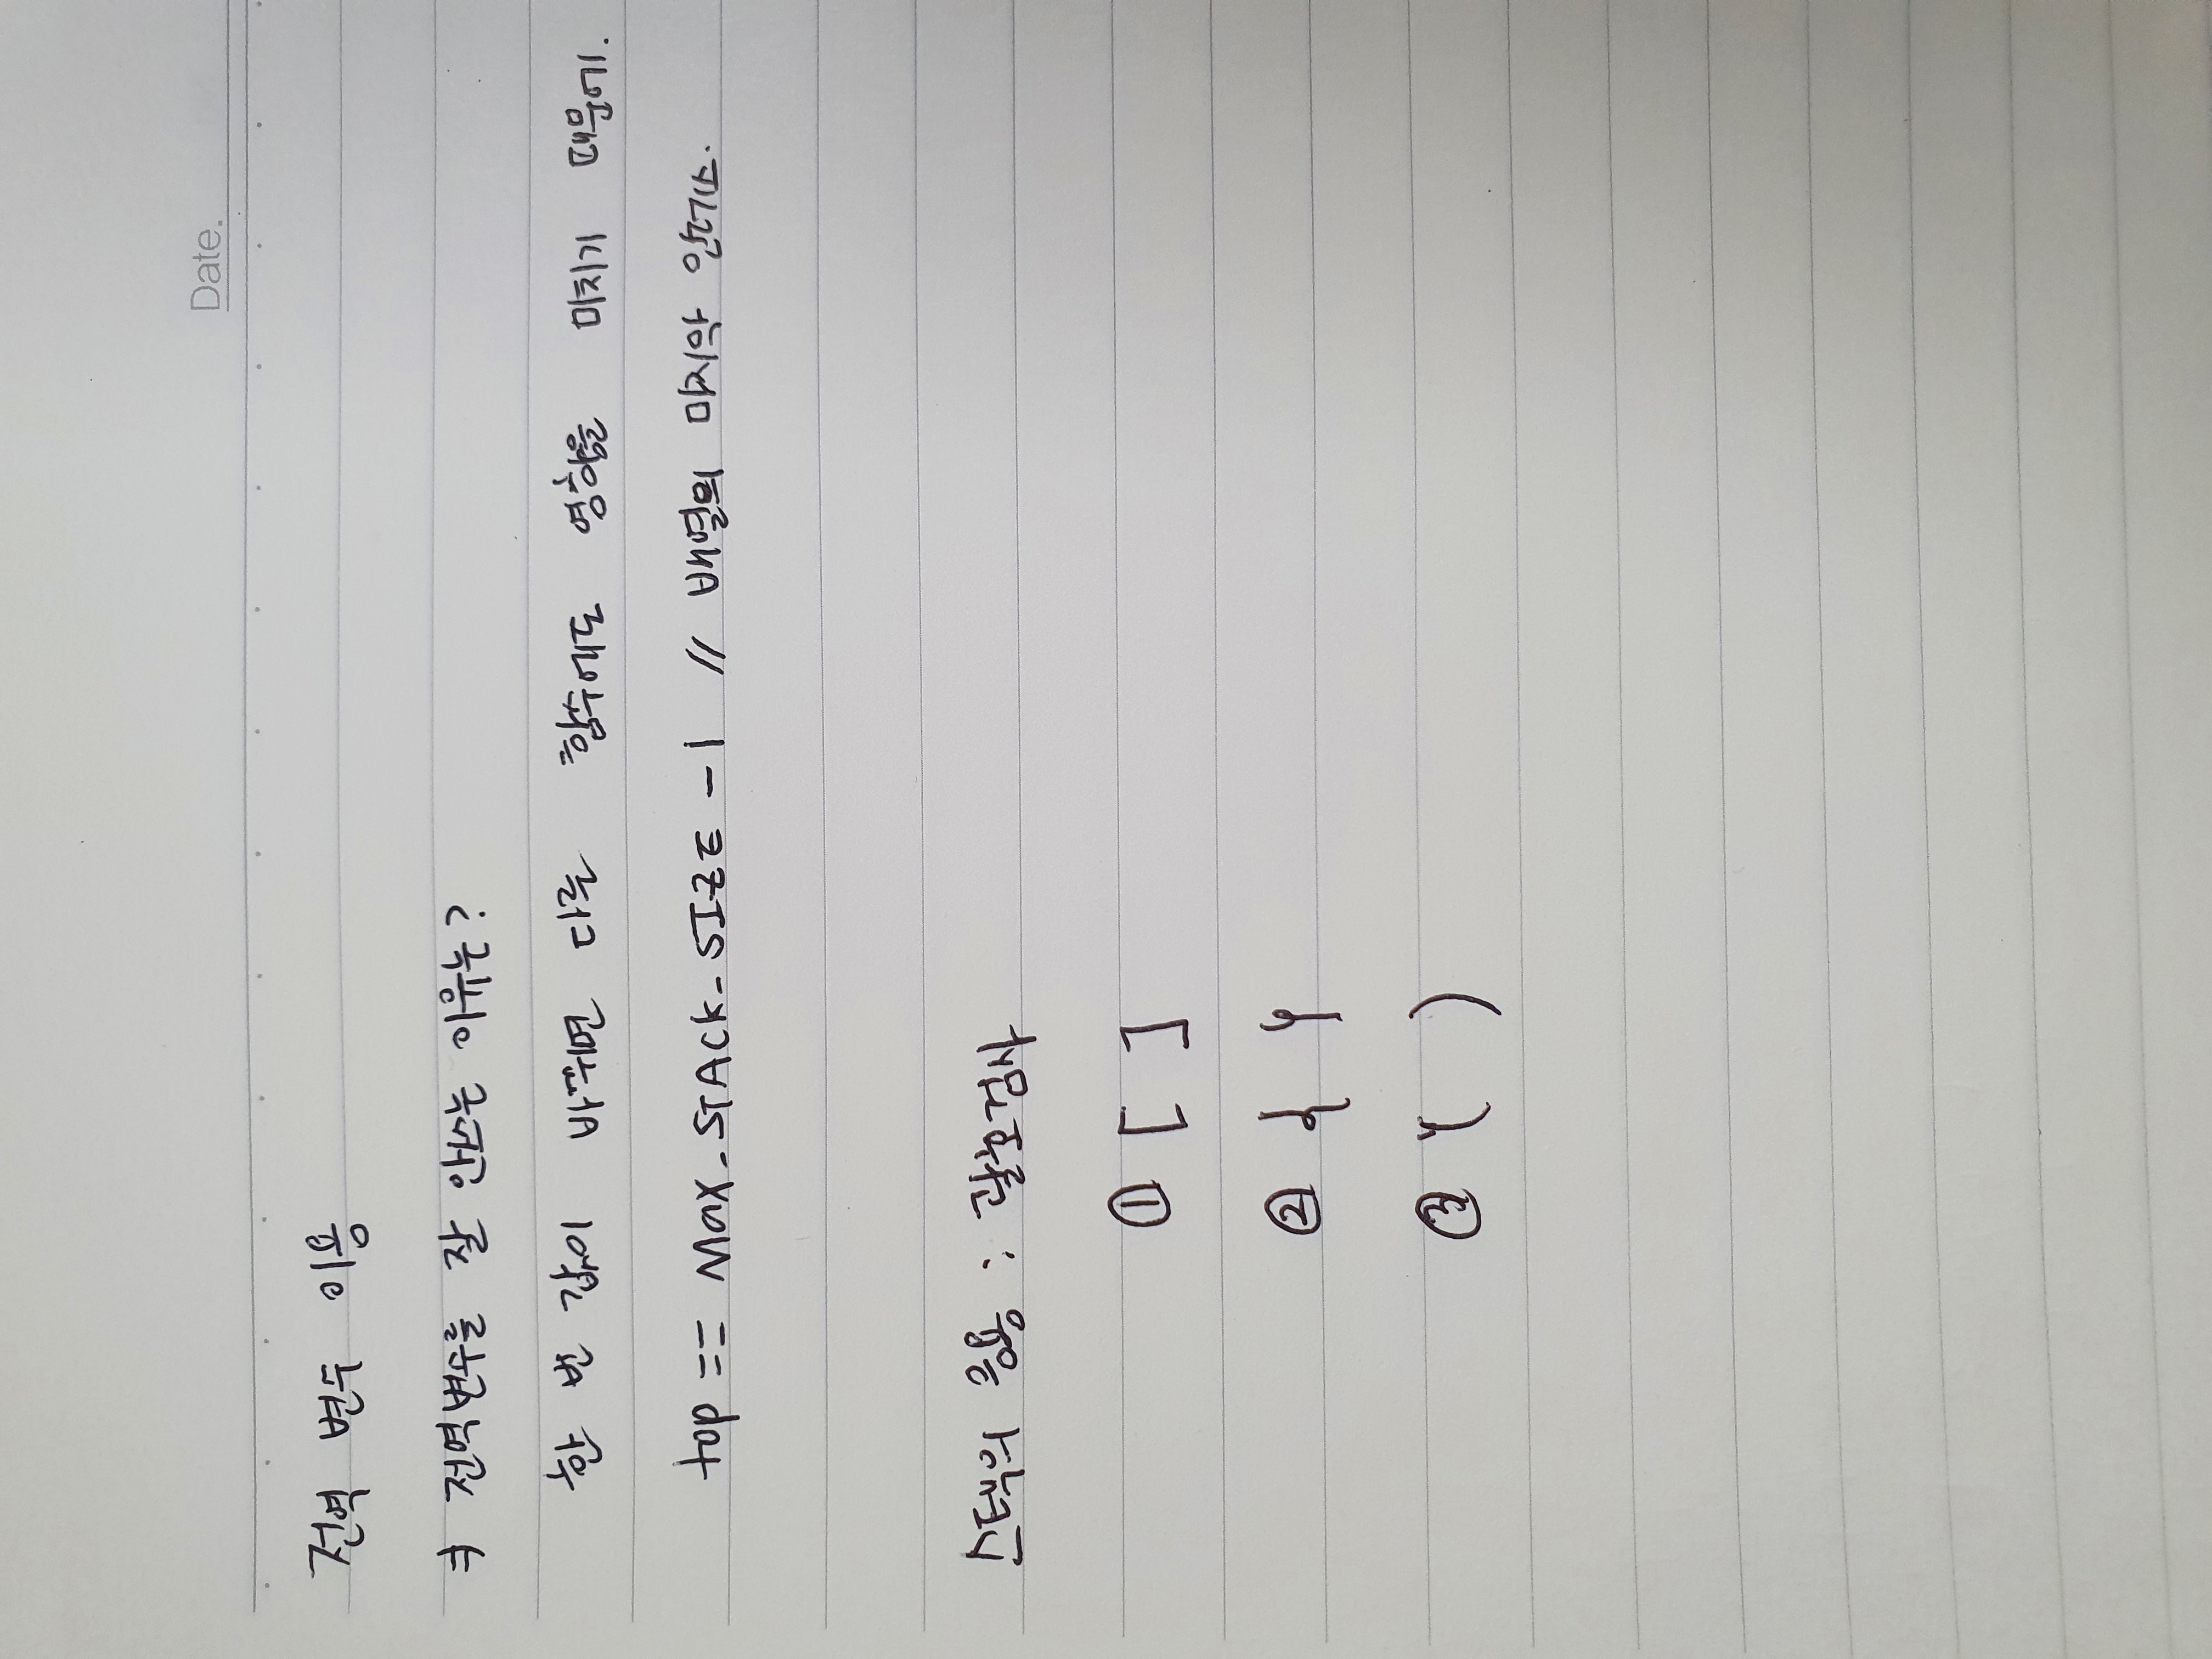 Date.
전역 변수 이용
⇒ 전역변수를 잘 안쓰는 이유는?
한 번 값이 바뀌면 다른 함수에도 영향을 미치기 때문에.
top == Max_STACK_SIZE -1 // 배열의 마지막 인덱스.
스택의 응용 : 괄호검사
① [ ]
② { }
③ ( )